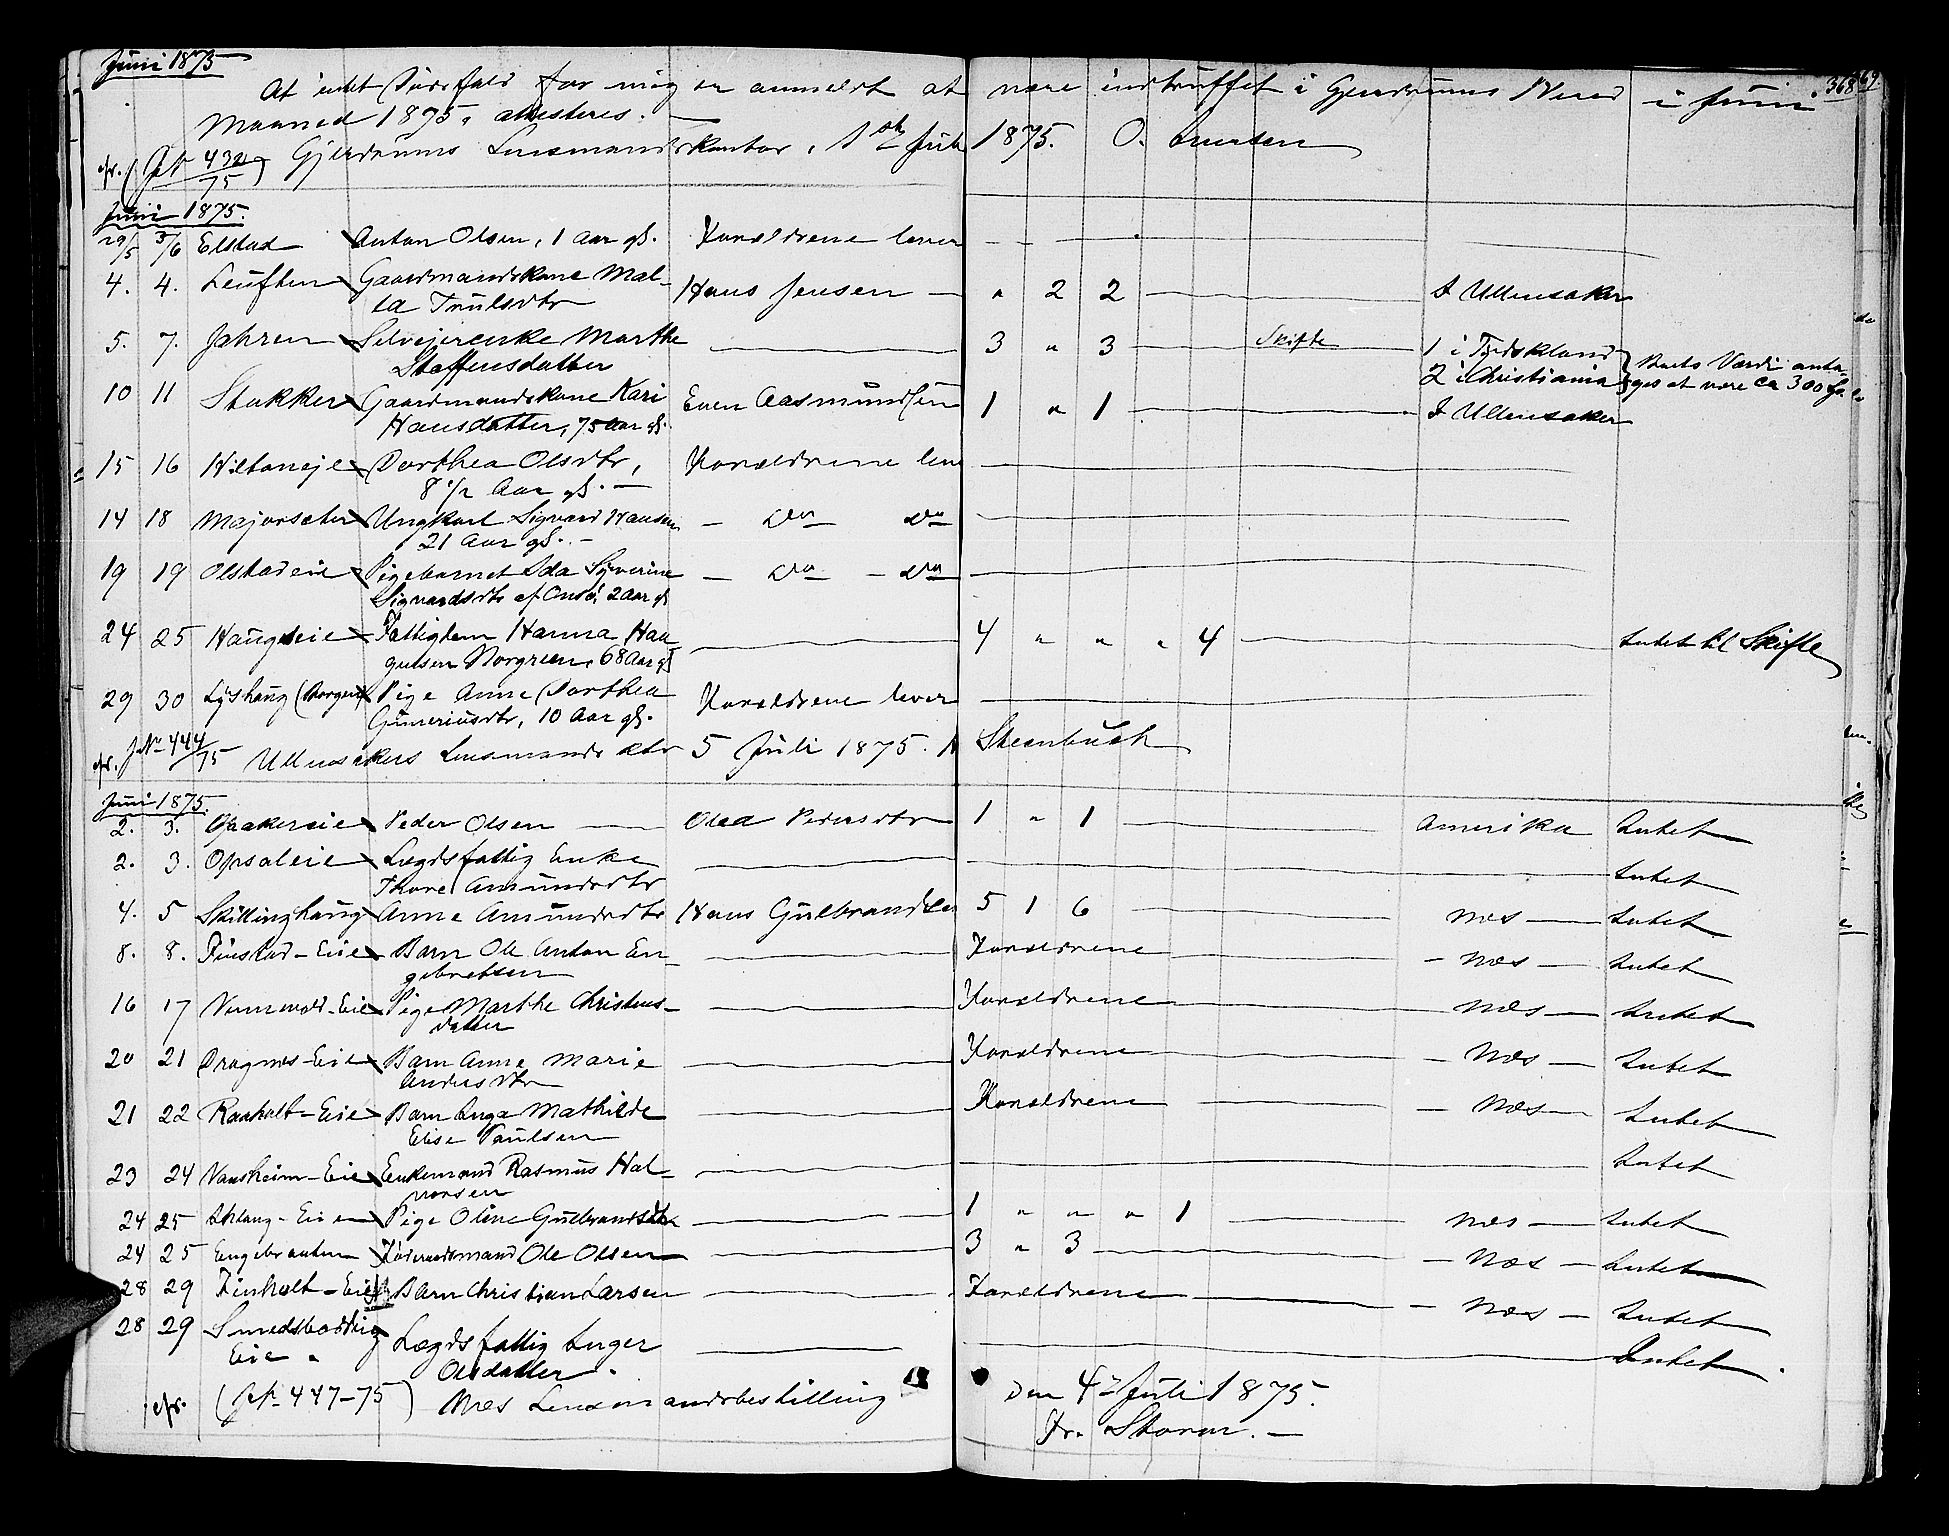 Juni 1875
368
At intet Dødsfald for mig er anmeldt at være indtruffet i Gjerdrums Hered i Juni
Maaned 1875, attesteres.
cfr. (JN 432/75) Gjerdrums Lensmandskontor, 1 Juli 1875. O.
Juni 1875.
29/5 3/6 Elstad Anton Olsen, 1 Aar gl. Forældrene lever
4. 4. Leuften Gaardmandskone Mal- Hans Jensen — " 2 2 — I Ullensaker
ta Trulsdtr
5. 7. Jahren Selveierenke Marthe — 3 " 3 — Skifte — 1 i Tydskland
Staffensdatter 2 i Christiania Boets Værdi anta-
ges at være ca 300
10 11 Stakker Gaardmandskone Kari Even Aasmundsen 1 " 1 — I Ullensaker
Hansdatter, 75 Aar gl.
15 16 Hiltoneje Dorthea Olsdtr, Forældrene leve
8 1/2 Aar gl. —
14 18 Majorsæter Ungkarl Sigvard Hansen — do do
21 Aar gl. —
19 19 Olstadeie Pigebarnet Ida Syverine — do — do
Sigvardsdtr 2 Aar gl
24 25 Haugseie Fattiglem Hanna Haa — 4 " " " 4 — Intet til Skifte
gensen Norgreen, 68 Aar gl
29 30 Lyshaug (Borgen) Pige Anne Dorthea Forældrene lever
Guneriusdtr, 10 Aar gl.
cfr. JN 444/75 Ullensakers Lensmands 5 Juli 1875. Steenbuch
Juni 1875.
2. 3. Opakereie Peder Olsen — Olea Pedersdtr 1 " 1 — Amerika Intet
2. 3. Opsaleie Lægdsfattig Enke — Intet
Thore Amundsdtr
4. 5 Skillinghaug Anne Amundsdtr Hans Gulbrandsen 5 1 6 — Næs — Intet
8. 8. Finstad-Eie Barn Ole Anton En- — Forældrene — Næs — Intet
gebretsen
16 17 Vennevold-Eie Pige Marthe Christens- — Forældrene — Næs — Intet
datter
20 21 Dragnes-Eie Barn Anne Marie — Forældrene — Næs — Intet
Andersdtr
21 22 Ranholt-Eie Barn Inga Mathilde — Forældrene — Næs — Intet
Elise Paulsen
23 24 Vansheim-Eie Enkemand Rasmus Hal- — Intet
vorsen
24 25 Eie Pige Oline Gulbrandsdtr — 1 " " " 1 — Næs — Intet
24 25 Engebraaten Føderaadsmand Ole Olsen — 3 " 3 — Næs — Intet
28 29 Finholt-Eie Barn Christian Larsen — Forældrene — Næs — Intet
28 29 Smedsbodding Lægdsfattig Inger — Intet.
Eie. Olsdatter.
cfr. (JN 447-75) Næs Lensmandsbestilling Den 4 Juli 1875.
Fr. Storm. —